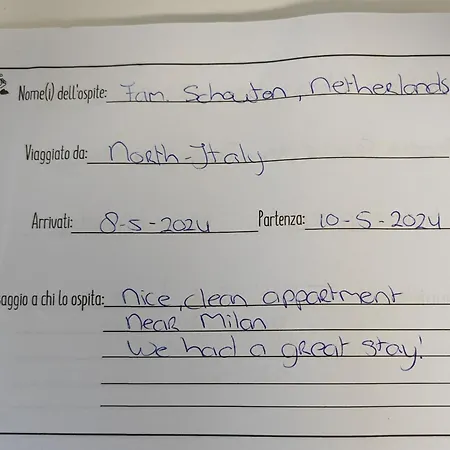 Nome(i) dell'ospite: Fam. Schouten, Netherlands
Viaggiato da: North-Italy
Arrivati: 8-5-2024 Partenza: 10-5-2024
saggio a chi lo ospita: nice, clean appartment
near Milan
We had a great stay!